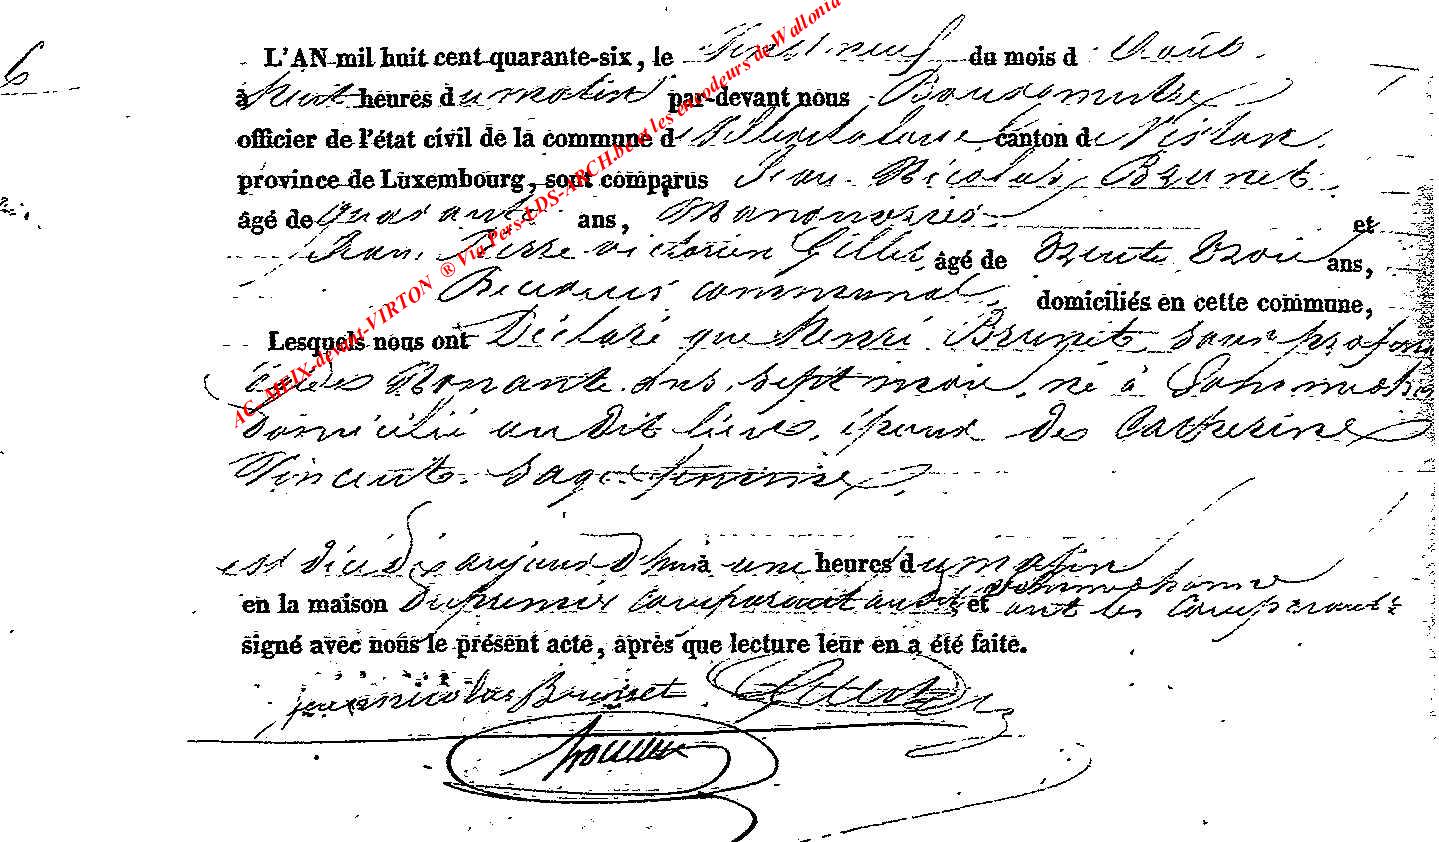 L'AN mil huit cent quarante-six, le vingt neuf du mois d'Août.
à huit heures du matin par-devant nous Bourgmestre
officier de l'état civil de la commune de Villers la loue canton de Virton.
province de Luxembourg, sont comparus Jean Nicolas Brunet.
âgé de quarante ans, Manouvrier et
Jean Pierre victorien Gillet, âgé de trente trois ans,
Receveur communal, domiciliés en cette commune,
Lesquels nous ont Déclaré que Henri Brunet sans profession
âgé de Nonante ans, sept mois, né à Sommethonne
domicilié au dit lieu, époux de Catherine
Vincent. Sage femme,
est décédé aujourd'hui à une heures du matin
en la maison du premier comparant audit Sommethonne et ont les comparants
signé avec nous le présent acte, après que lecture leur en a été faite.
jean nicolas Brunet Gillet
AC. MEIX-devant-VIRTON ® Via Pers-LDS-ARCH.be et les encodeurs de Wallonia